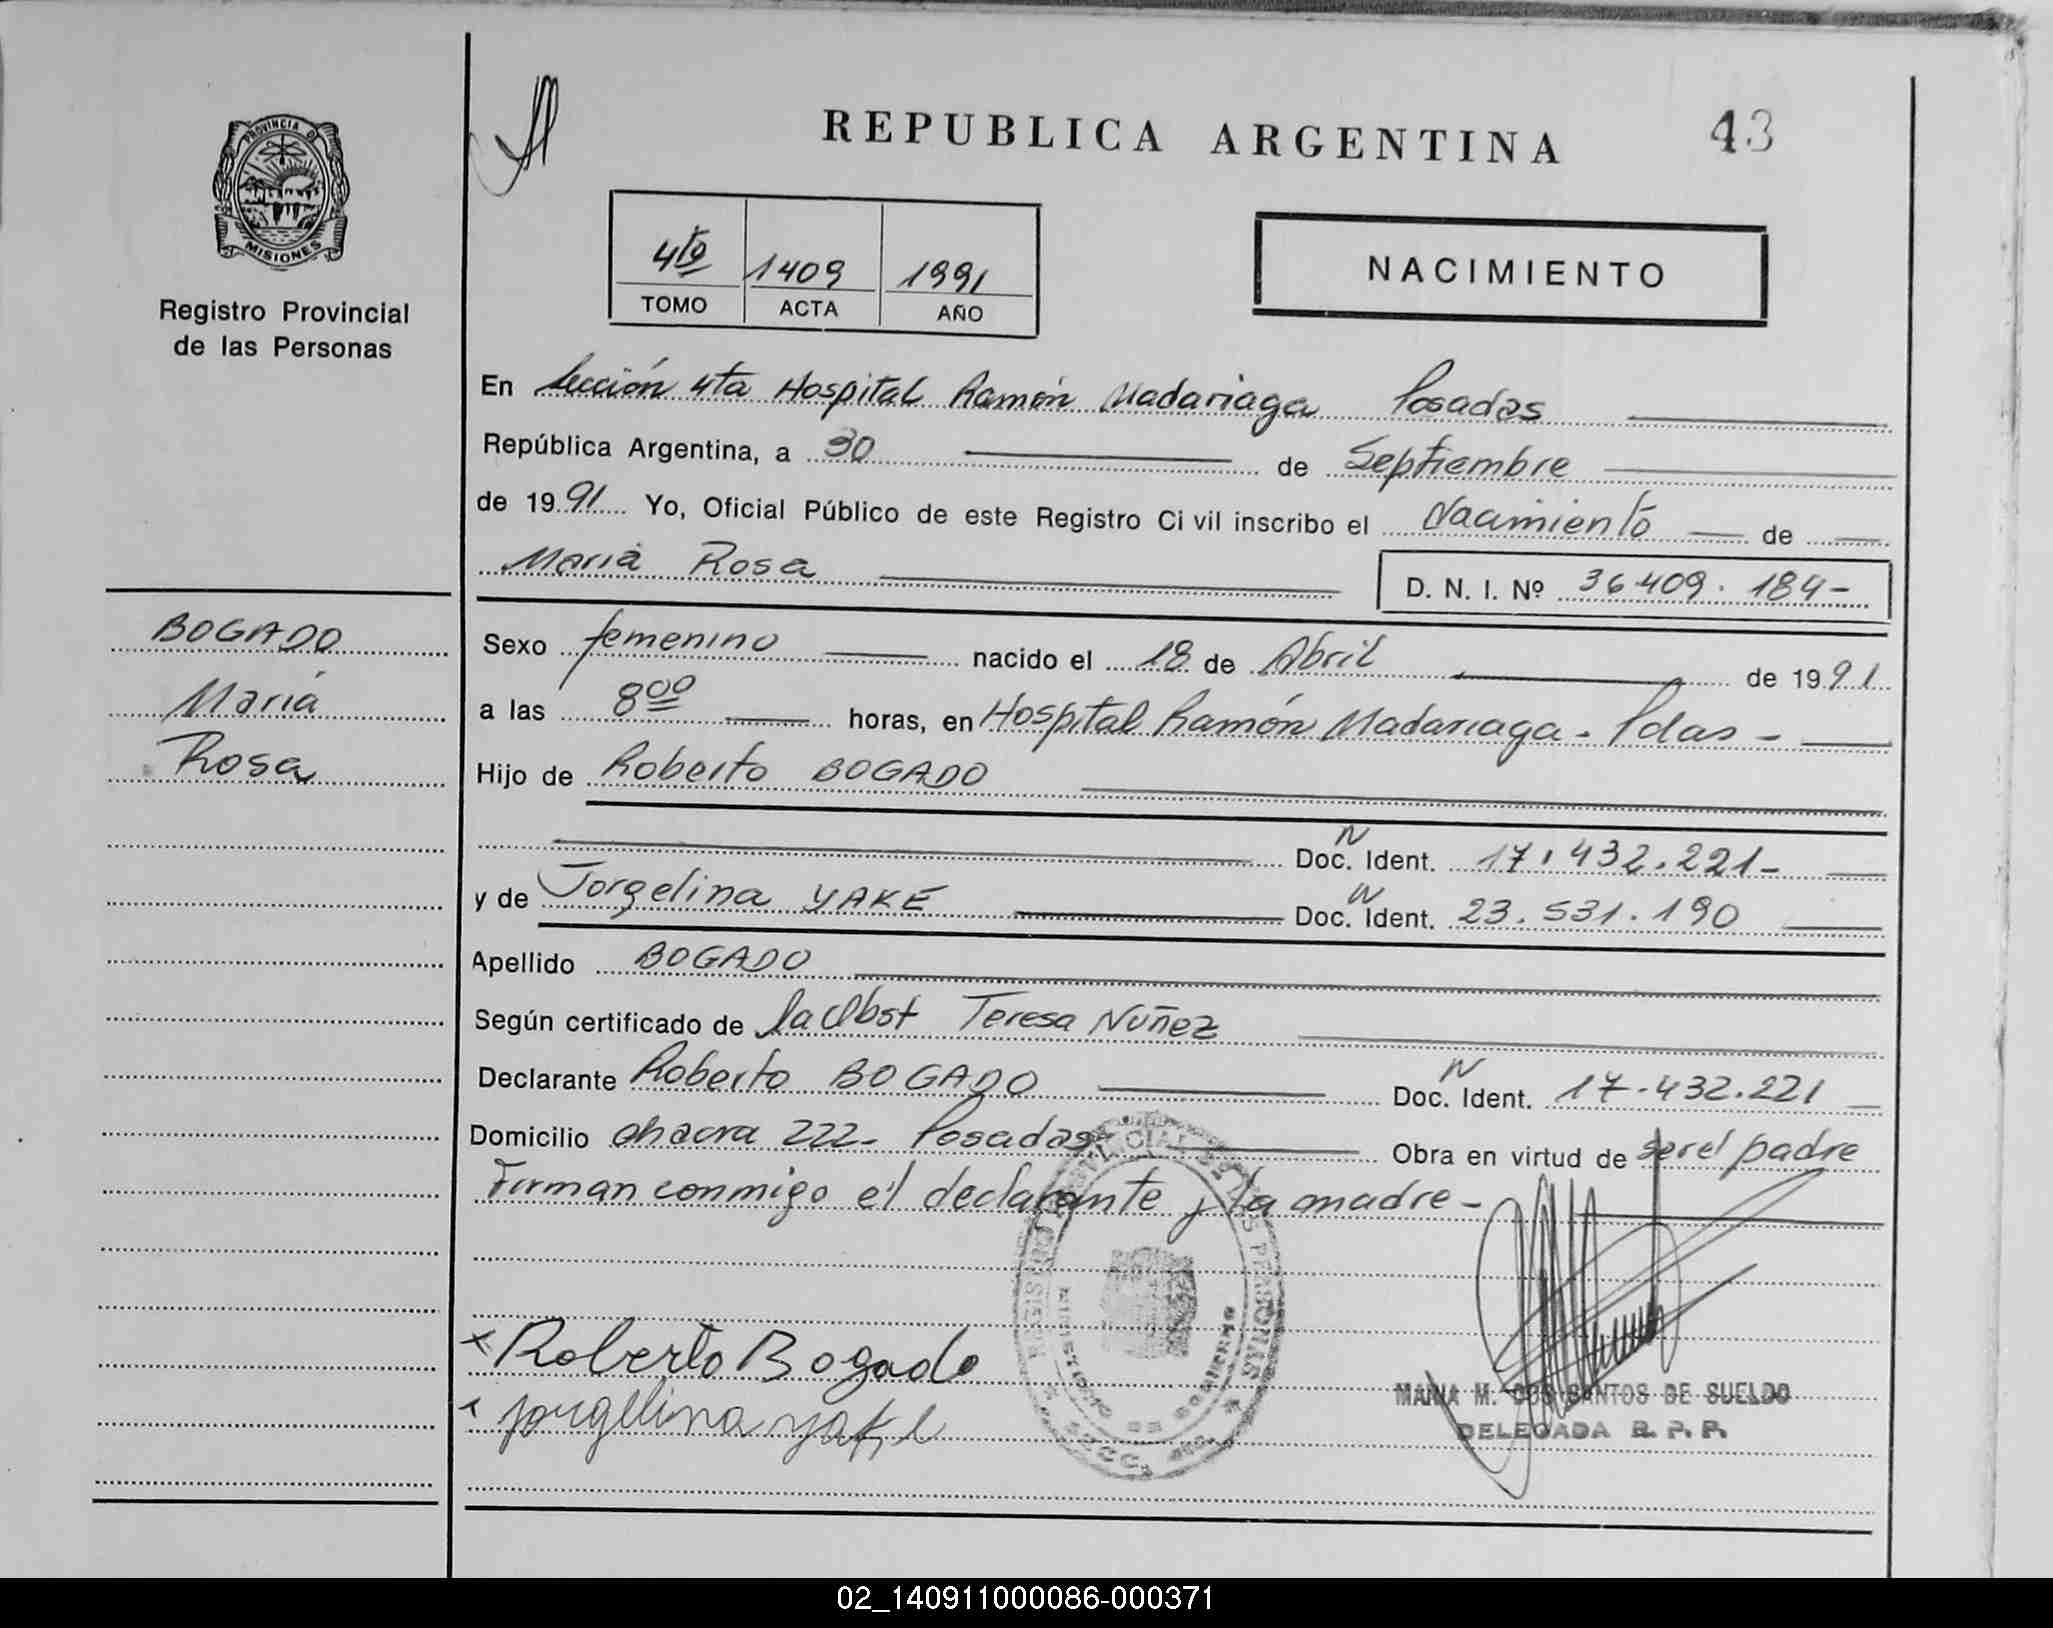 REPUBLICA ARGENTINA
43
PROVINCIA DE
MISIONES
Registro Provincial
de las Personas
4to 1409 1991
TOMO ACTA AÑO
NACIMIENTO
En Sección 4ta Hospital Ramón Madariaga Posadas
República Argentina, a 30 de Septiembre
de 1991 Yo, Oficial Público de este Registro Ci vil inscribo el Nacimiento de
María Rosa D. N. I. Nº 36409.184-
BOGADO
María
Rosa
Sexo femenino nacido el 18 de Abril de 1991
a las 8 00 horas, en Hospital Ramón Madariaga - Pdas -
Hijo de Roberto BOGADO
N
Doc. Ident. 17.432.221-
y de Jorgelina YAKE N Doc. Ident. 23.531.190
Apellido BOGADO
Según certificado de la Obst Teresa Nuñez
Declarante Roberto BOGADO N Doc. Ident. 17.432.221
Domicilio chacra 222- Posadas- Obra en virtud de ser el padre
Firman conmigo el declarante y la madre-
x Roberto Bogado
x jorgelina yake
REGISTRO PROVINCIAL DE LAS PERSONAS
MINISTERIO DE GOBIERNO
MARIA M. DOS SANTOS DE SUELDO
DELEGADA R. P. P.
02_140911000086-000371